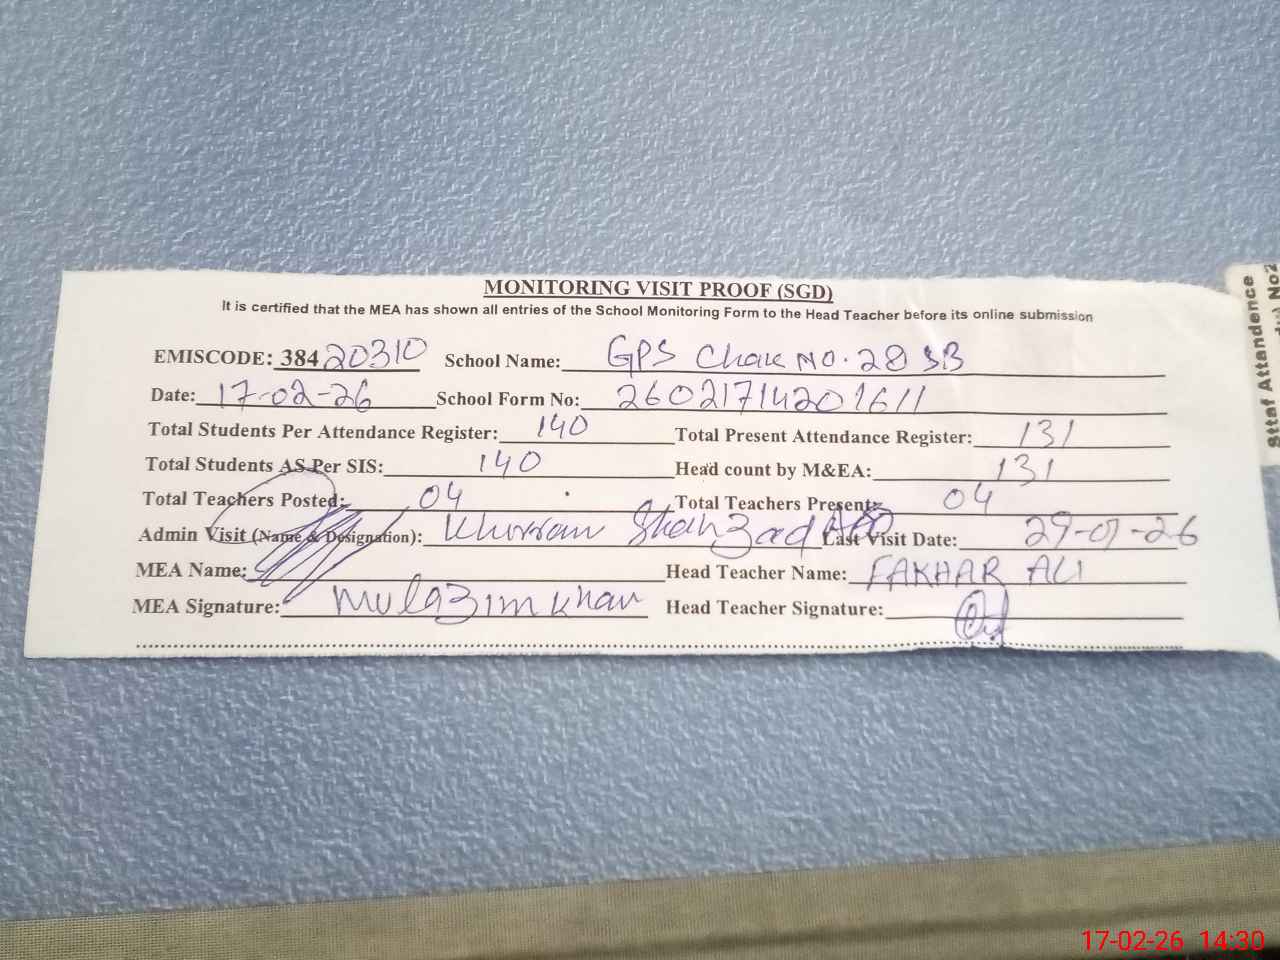 MONITORING VISIT PROOF (SGD)
It is certified that the MEA has shown all entries of the School Monitoring Form to the Head Teacher before its online submission
EMISCODE: 38420310 School Name: GPS Chak NO. 28 SB
Date: 17-02-26 School Form No:
Total Students Per Attendance Register: 140 Total Present Attendance Register: 131
Total Students AS Per SIS: 140 Head count by M&EA: 131
Total Teachers Posted: 04 Total Teachers Present: 04
Admin Visit (Name & Designation): Khurram Shahzad Last Visit Date: 29-01-26
MEA Name: Head Teacher Name: FAKHAR ALI
MEA Signature: Mulazim Khan Head Teacher Signature:
Sttaf Attendence
No2
17-02-26 14:30